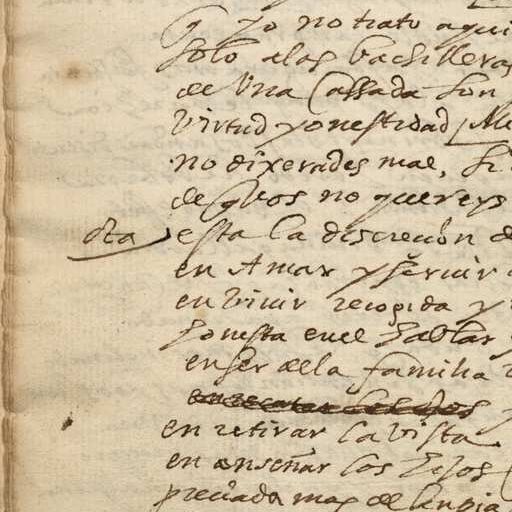 q yo no trato aqui
solo a las bachilleras
de Una Cassada son
Virtud y onestidad
no dixerades mal, si
de q Vos no quereys
ota esta la discrecion de
en Amar y seruir
en biuir recogida y
honesta en el hablar
en ser de la familia
en retirar la vista
en enseñar los hijos
preciada mas de limpia